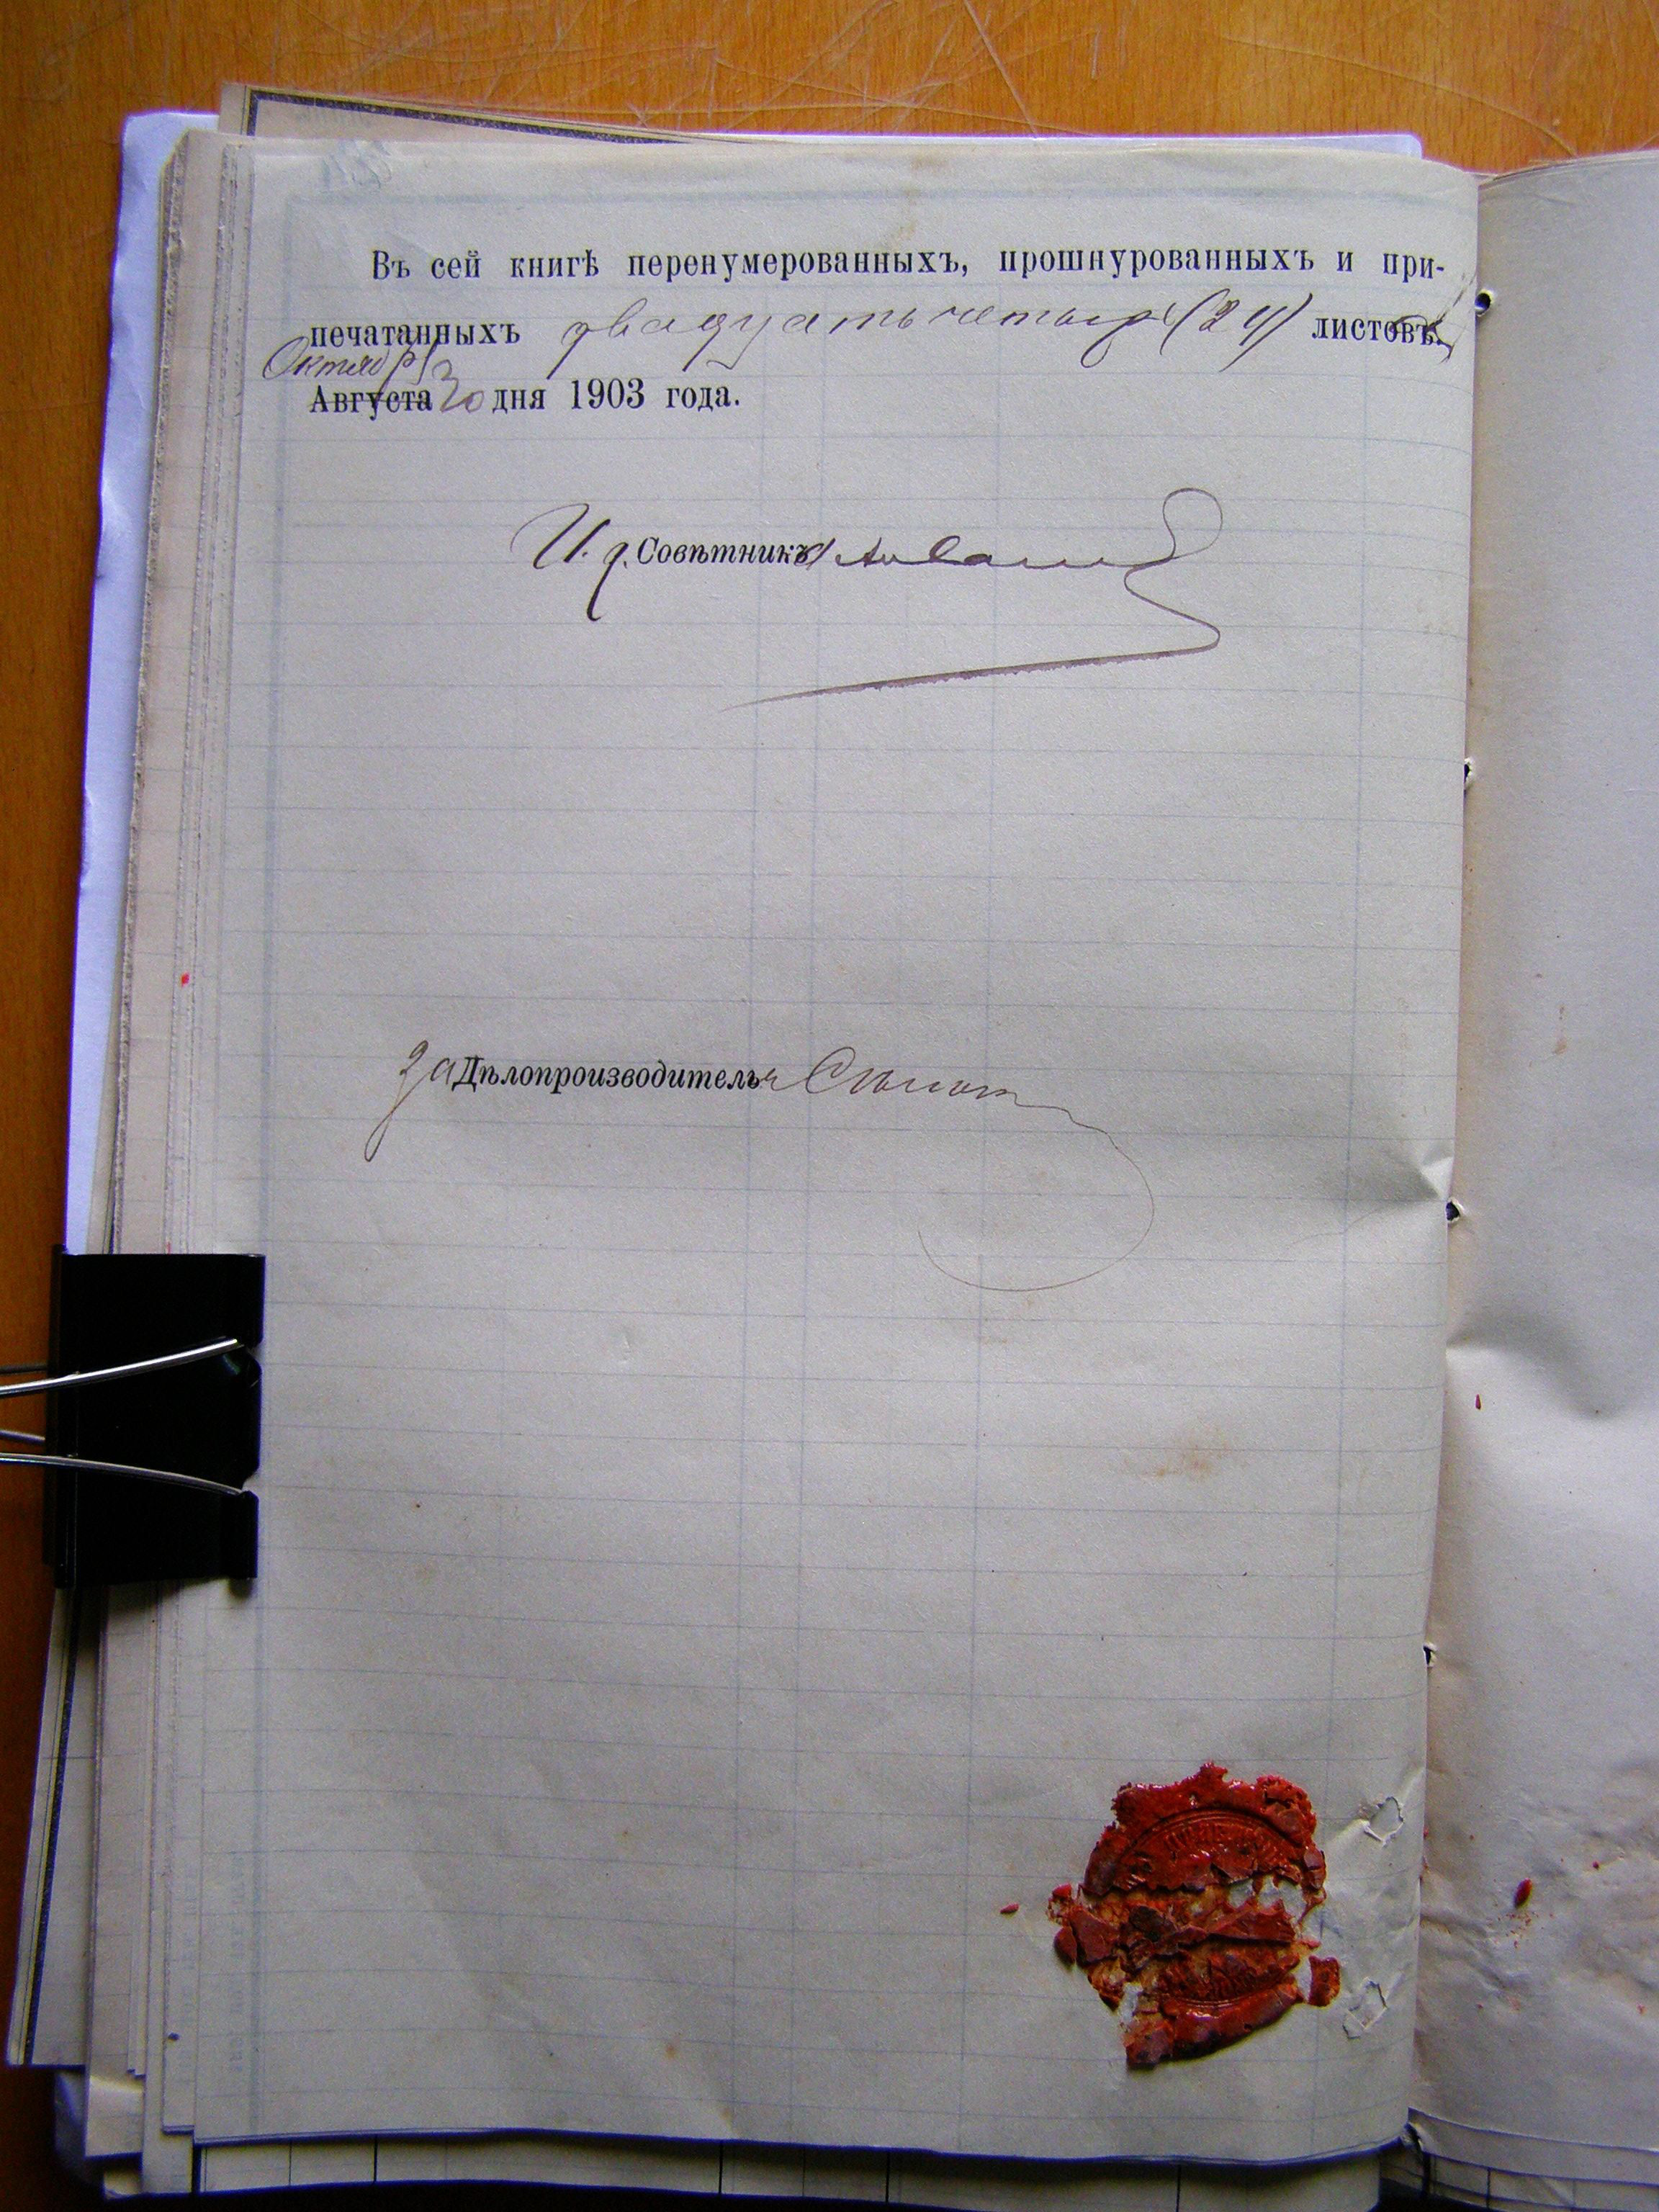 Въ сей книгѣ перенумерованныхъ, прошнурованныхъ и при-
печатанныхъ двадцать четыре (24) листовъ.
Октября
Августа 30 дня 1903 года.
И. д. Совѣтника
За Дѣлопроизводителя